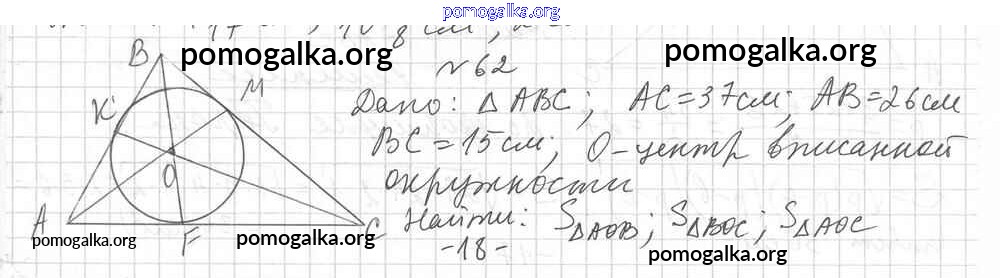 pomogalka.org
pomogalka.org
pomogalka.org
№62
B
M
K
Дано: △ABC; AC=37см; AB=26см
BC=15см; O-центр вписанной
окружности
O
A
F
C
Найти: S△AOB; S△BOC; S△AOC
-18-
pomogalka.org
pomogalka.org
pomogalka.org